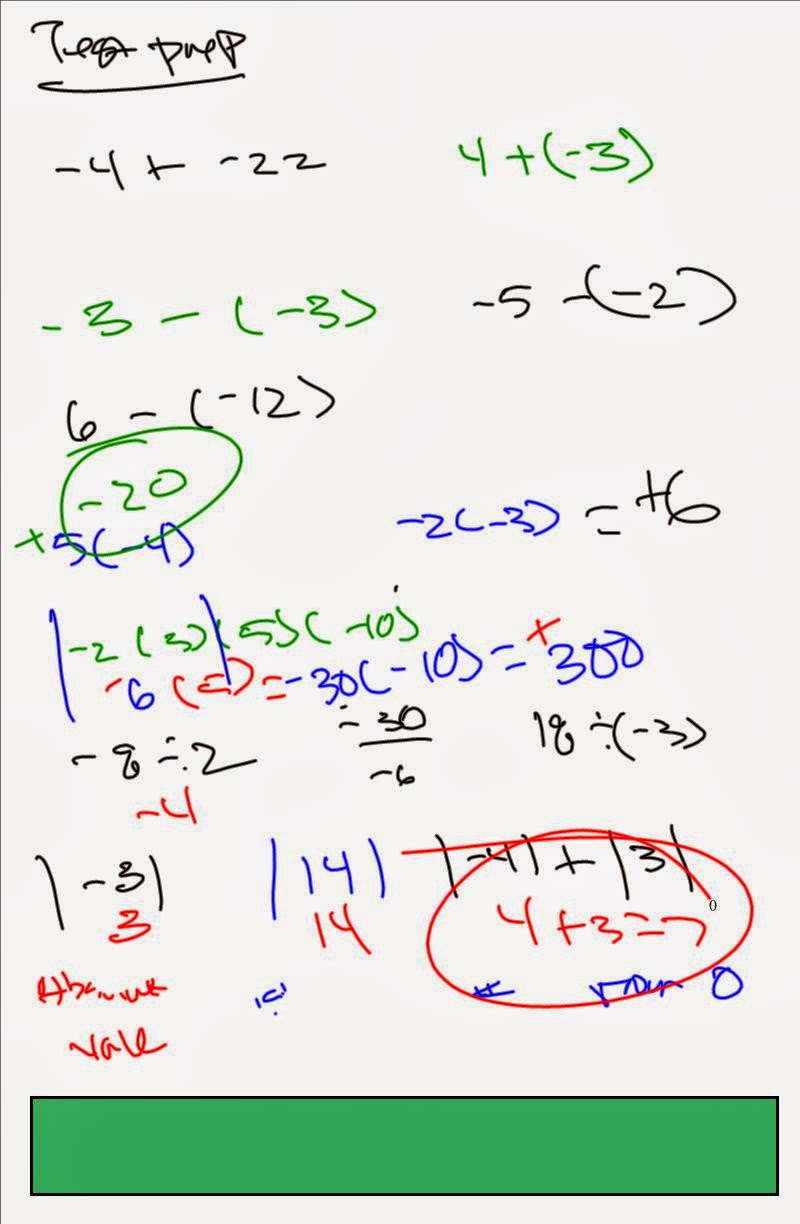 Test prep
-4 + -22 4 + (-3)
-3 - (-3) -5 - (-2)
6 - (-12)
-20
+5(-4) -2(-3) = +6
|-2 (3)|(5)(-10)
-6 (5) = -30(-10) = +300
-8 ÷ 2 -30/-6 18 ÷ (-3)
-4
|-3| |14| |-4| + |3|
3 14 4 + 3 = 7
Absolute is # from 0
Value
0